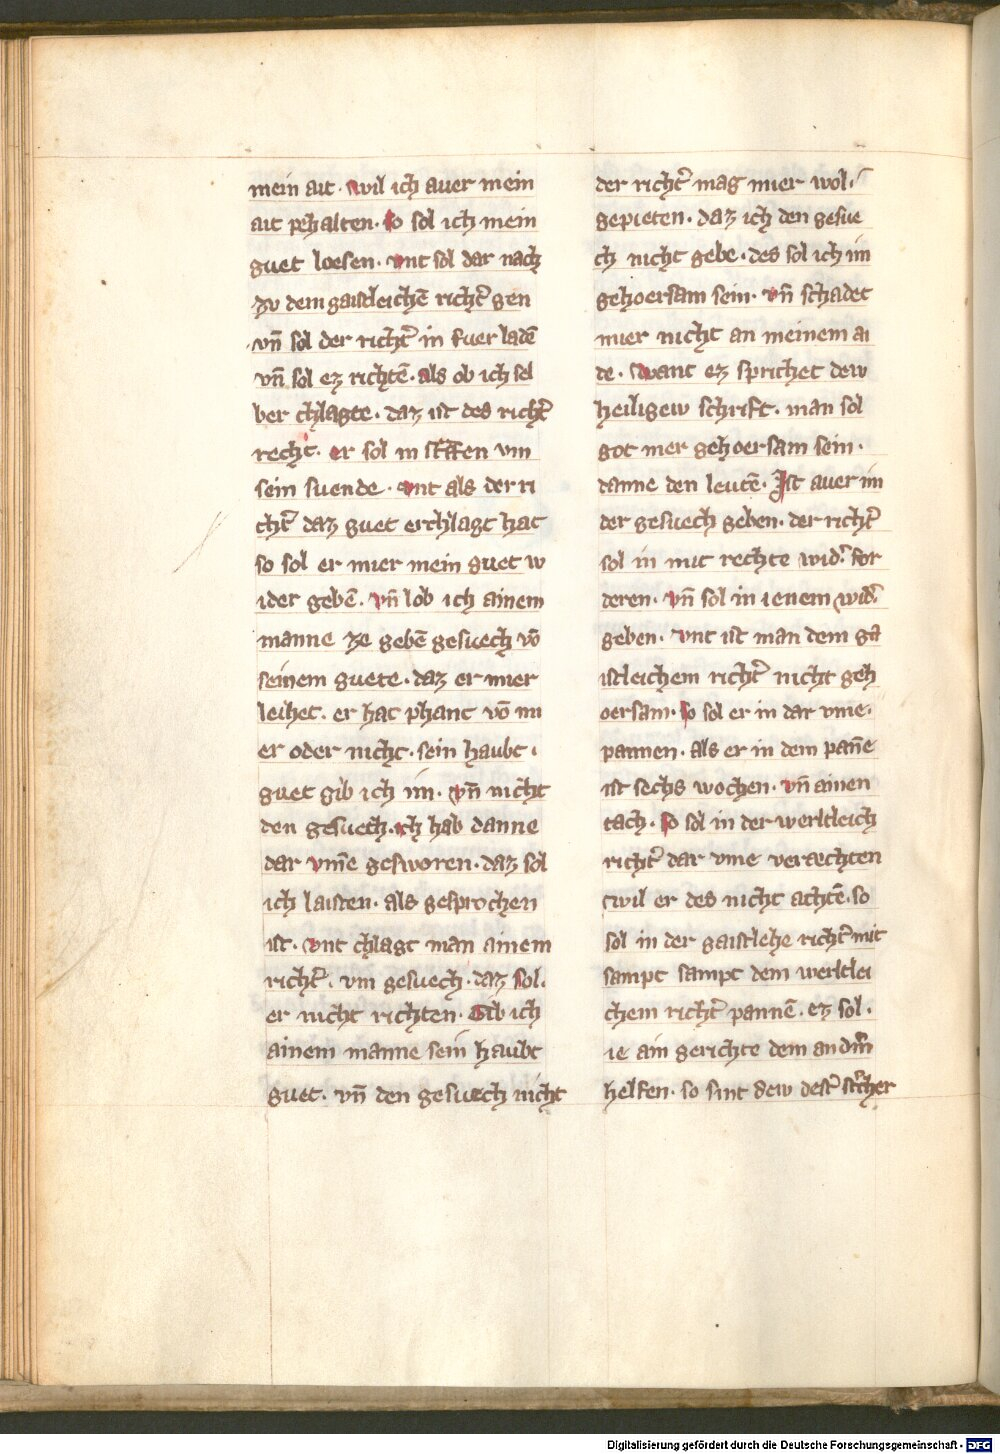 mein ait · wil ich auer mein
ait pehalten · so sol ich mein
guet loesen · vnt sol dar nach
zv dem gaistleichē richt̄ gen
vn̄ sol der richt̄ in fuer ladē
vn̄ sol ez richtē · als ob ich sel
ber chlagte · daz ist des richt̄
recht · er sol in straffen vm
sein suende · vnt als der ri
cht̄ daz guet erchlagt hat
so sol er mier mein guet w
ider gebē · vn̄ lob ich ainem
manne ze gebē gesuech vō
seinem guete · daz er mier
leihet · er hat phant vō mi
er oder nicht · sein haubt ·
guet gib ich im · vn̄ nicht
den gesuech · ich hab danne
dar vm̄e gesworen · daz sol
ich laisten · als gesprochen
ist · vnt chlagt man ainem
richt̄ · vm gesuech · daz sol ·
er nicht richten · Gib ich
ainem manne sein haubt
guet · vn̄ den gesuech nicht
der richt̄ mag mier wol ·
gepieten · daz ich den gesue
ch nicht gebe · des sol ich im
gehoersam sein · vn̄ schadet
mier nicht an meinem ai
de · want ez sprichet dew
heiligew schrift · man sol
got mer gehoersam sein ·
danne den leutē · Ist auer im
der gesuech geben · der richt̄
sol in mit rechte wid̄ for
deren · vn̄ sol in ienem wid̄
geben · vnt ist man dem ga
istleichem richt̄ nicht geh
oersam · so sol er in dar vme ·
pannen · als er in dem pan̄e
ist sechs wochen · vn̄ ainen
tach · so sol in der werltleich
richt̄ dar vme veraechten
wil er des nicht achtē · so
sol in der gaistlehe richt̄ mit
sampt sampt dem werltlei
chem richt̄ pannē · ez sol ·
ie ain gerichte dem andm̄
helfen · so sint dew dest̄
Digitalisierung gefördert durch die Deutsche Forschungsgemeinschaft - DFG